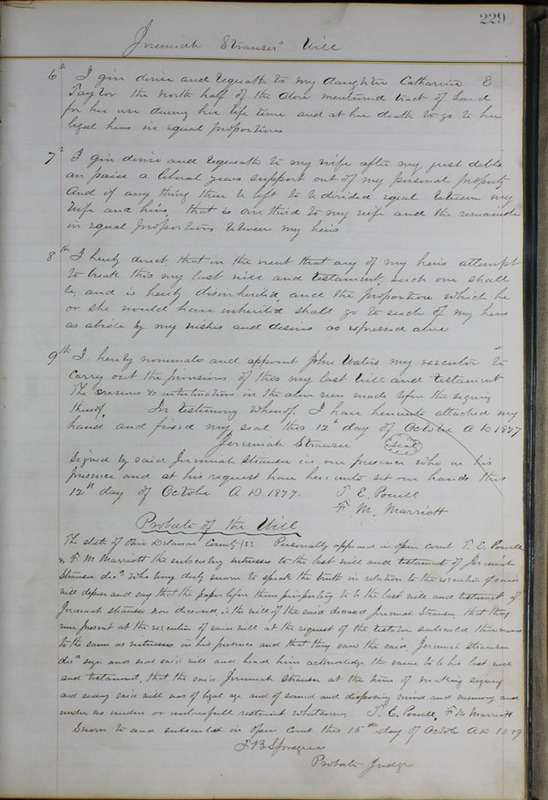 229
Jeremiah Strauser's Will
6th I give devise and bequeath to my daughter Catharine E
Taylor the North half of the above mentioned tract of Land
for her use during her life time and at her death to go to her
legal heirs in equal proportions
7th I give devise and bequeath to my wife after my just debts
are paid a liberal years support out of my personal property
And if any thing there be left to be divided equal between my
wife and heirs, that is one third to my wife and the remainder
in equal proportions between my heirs
8th I hereby direct that in the event that any of my heirs attempt
to break this my last will and testament, such one shall
be, and is hereby disinherited, and the proportion which he
or she would have inherited shall go to such of my heirs
as abide by my wishes and desires as expressed above
9th I hereby nominate and appoint John Waters my executor to
carry out the provisions of this my last Will and testament
The erasures & interlineation in the above were made before the signing
thereof. In testimony whereof I have hereunto attached my
hand and fixed my seal this 12th day of October A D 1877
Jeremiah Strauser seal
Signed by said Jeremiah Strauser in our presence who in his
presence and at his request have hereunto set our hands this
12th day of October A D 1877. T. E. Powell
F. M. Marriott
Probate of the Will
The State of Ohio Delaware County SS Personally appeared in open court T. E. Powell
& F. M. Marriott the subscribing witnesses to the last will and testament of Jeremiah
Strauser decd who being duly sworn to speak the truth in relation to the execution of said
will depose and say that the paper before them purporting to be the last will and testament of
Jeremiah Strauser now deceased, is the will of the said deceased Jeremiah Strauser, that they
were present at the execution of said will at the request of the testator subscribed their names
to the same as witnesses in his presence and that they saw the said Jeremiah Strauser
decd sign and seal said will and heard him acknowledge the same to be his last will
and testament, that the said Jeremiah Strauser at the time of making signing
and sealing said will was of legal age and of sound and disposing mind and memory and
under no undue or unlawful restraint whatsoever T. E. Powell, F. M. Marriott
Sworn to and subscribed in open Court this 15th day of October A D 1879
F. B. Sprague
Probate Judge